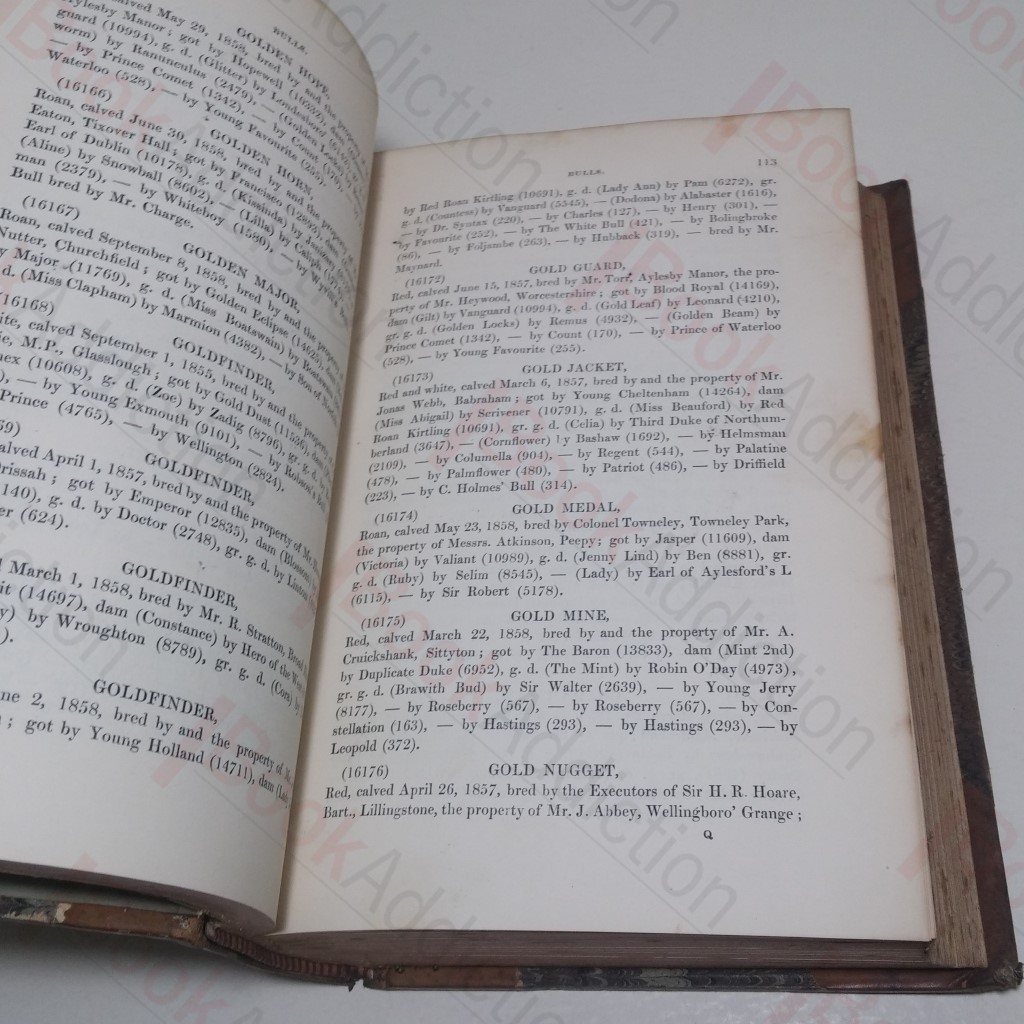 BULLS.
calved May 29, 1858, bred by and the
GOLDEN HOPE,
Aylesby Manor; got by Hopewell (10332),
guard (10994), g. d. (Glitter) by Londesboro'
worm) by Ranunculus (2479), — (Golden
— by Prince Comet (1342), — by Count (170),
Waterloo (528), — by Young Favourite (255).
(16166)
GOLDEN HORN,
Roan, calved June 30, 1858, bred by and the
Eaton, Tixover Hall; got by Francisco (12893),
Earl of Dublin (10178), g. d. (Kissinda) by
(Aline) by Snowball (8602), — (Lilla) by Caliph
man (2379), — by Whiteboy (1580), — by
Bull bred by Mr. Charge.
(16167)
GOLDEN MAJOR,
Roan, calved September 8, 1858, bred by and the
Nutter, Churchfield; got by Golden Eclipse (14625),
Major (11769), g. d. (Miss Boatswain) by Boatswain
d. (Miss Clapham) by Marmion (4382), — by Son of
(16168)
GOLDFINDER,
calved September 1, 1855, bred by and the
M.P., Glasslough; got by Gold Dust (11536),
(10608), g. d. (Zoe) by Zadig (8796), gr. g. d.
— by Young Exmouth (9101), — by Robson's
Prince (4765), — by Wellington (2824).
GOLDFINDER,
calved April 1, 1857, bred by and the property of Mr.
got by Emperor (12835), dam (Blossom)
g. d. by Doctor (2748), gr. g. d. by Linton
(624).
GOLDFINDER,
March 1, 1858, bred by Mr. R. Stratton,
(14697), dam (Constance) by Hero of the West
by Wroughton (8789), gr. g. d. (Cora) by
GOLDFINDER,
2, 1858, bred by and the property of
; got by Young Holland (14711), dam
BULLS. 113
by Red Roan Kirtling (10691), g. d. (Lady Ann) by Pam (6272), gr.
g. d. (Countess) by Vanguard (5545), — (Dodona) by Alabaster (1616),
— by Dr. Syntax (220), — by Charles (127), — by Henry (301), —
by Favourite (252), — by The White Bull (421), — by Bolingbroke
(86), — by Foljambe (263), — by Hubback (319), — bred by Mr.
Maynard.
(16172) GOLD GUARD,
Red, calved June 15, 1857, bred by Mr. Torr, Aylesby Manor, the pro-
perty of Mr. Heywood, Worcestershire; got by Blood Royal (14169),
dam (Gilt) by Vanguard (10994), g. d. (Gold Leaf) by Leonard (4210),
gr. g. d. (Golden Locks) by Remus (4932), — (Golden Beam) by
Prince Comet (1342), — by Count (170), — by Prince of Waterloo
(528), — by Young Favourite (255).
(16173) GOLD JACKET,
Red and white, calved March 6, 1857, bred by and the property of Mr.
Jonas Webb, Babraham; got by Young Cheltenham (14264), dam
(Miss Abigail) by Scrivener (10791), g. d. (Miss Beauford) by Red
Roan Kirtling (10691), gr. g. d. (Celia) by Third Duke of Northum-
berland (3647), — (Cornflower) by Bashaw (1692), — by Helmsman
(2109), — by Columella (904), — by Regent (544), — by Palatine
(478), — by Palmflower (480), — by Patriot (486), — by Driffield
(223), — by C. Holmes' Bull (314).
(16174) GOLD MEDAL,
Roan, calved May 23, 1858, bred by Colonel Towneley, Towneley Park,
the property of Messrs. Atkinson, Peepy; got by Jasper (11609), dam
(Victoria) by Valiant (10989), g. d. (Jenny Lind) by Ben (8881), gr.
g. d. (Ruby) by Selim (8545), — (Lady) by Earl of Aylesford's L
(6115), — by Sir Robert (5178).
(16175) GOLD MINE,
Red, calved March 22, 1858, bred by and the property of Mr. A.
Cruickshank, Sittyton; got by The Baron (13833), dam (Mint 2nd)
by Duplicate Duke (6952), g. d. (The Mint) by Robin O'Day (4973),
gr. g. d. (Brawith Bud) by Sir Walter (2639), — by Young Jerry
(8177), — by Roseberry (567), — by Roseberry (567), — by Con-
stellation (163), — by Hastings (293), — by Hastings (293), — by
Leopold (372).
(16176) GOLD NUGGET,
Red, calved April 26, 1857, bred by the Executors of Sir H. R. Hoare,
Bart., Lillingstone, the property of Mr. J. Abbey, Wellingboro' Grange;
Q
BookAddiction